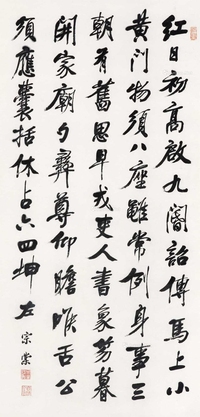 紅日初高啟九閽詔傳馬上小
黄门物須八座雖常例身事三
朝有舊恩早戒吏人書象笏暮
開家廟勺彝尊仰瞻喉舌公
須應囊括休占六四坤 左宗棠